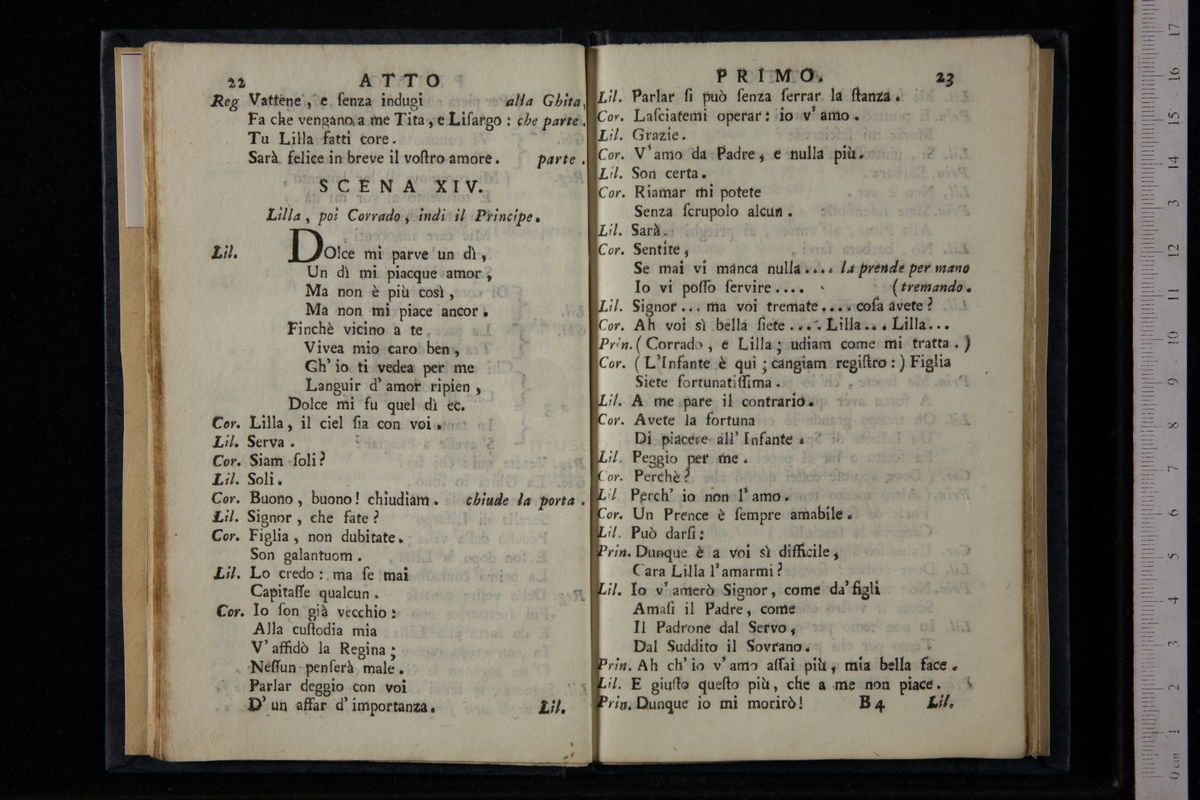 22 ATTO
Reg Vattene, e ſenza indugi alla Ghita,
Fa che vengano a me Tita, e Liſargo: che parte.
Tu Lilla fatti core.
Sarà felice in breve il voſtro amore. parte.
SCENA XIV.
Lilla, poi Corrado, indi il Principe.
Lil. DOlce mi parve un dì,
Un dì mi piacque amor,
Ma non è più così,
Ma non mi piace ancor.
Finchè vicino a te
Vivea mio caro ben,
Ch' io ti vedea per me
Languir d' amor ripien,
Dolce mi fu quel dì ec.
Cor. Lilla, il ciel ſia con voi.
Lil. Serva.
Cor. Siam ſoli?
Lil. Soli.
Cor. Buono, buono! chiudiam. chiude la porta.
Lil. Signor, che fate?
Cor. Figlia, non dubitate.
Son galantuom.
Lil. Lo credo: ma ſe mai
Capitaſſe qualcun.
Cor. Io ſon già vecchio:
Alla cuſtodia mia
V' affidò la Regina;
Neſſun penſerà male.
Parlar deggio con voi
D' un affar d' importanza. Lil.
PRIMO. 23
Lil. Parlar ſi può ſenza ſerrar la ſtanza.
Cor. Laſciatemi operar: io v' amo.
Lil. Grazie.
Cor. V' amo da Padre, e nulla più.
Lil. Son certa.
Cor. Riamar mi potete
Senza ſcrupolo alcun.
Lil. Sarà.
Cor. Sentite,
Se mai vi manca nulla.... la prende per mano
Io vi poſſo ſervire.... (tremando.
Lil. Signor... ma voi tremate.... coſa avete?
Cor. Ah voi sì bella ſiete.... Lilla... Lilla...
Prin. (Corrado, e Lilla; udiam come mi tratta.)
Cor. (L'Infante è qui; cangiam regiſtro:) Figlia
Siete fortunatiſſima.
Lil. A me pare il contrario.
Cor. Avete la fortuna
Di piacere all' Infante.
Lil. Peggio per me.
Cor. Perchè?
Lil Perch' io non l' amo.
Cor. Un Prence è ſempre amabile.
Lil. Può darſi:
Prin. Dunque è a voi sì difficile,
Cara Lilla l'amarmi?
Lil. Io v' amerò Signor, come da' figli
Amaſi il Padre, come
Il Padrone dal Servo,
Dal Suddito il Sovrano.
Prin. Ah ch' io v' amo aſſai più, mia bella face.
Lil. E giuſto queſto più, che a me non piace.
Prin. Dunque io mi morirò! B 4 Lil.